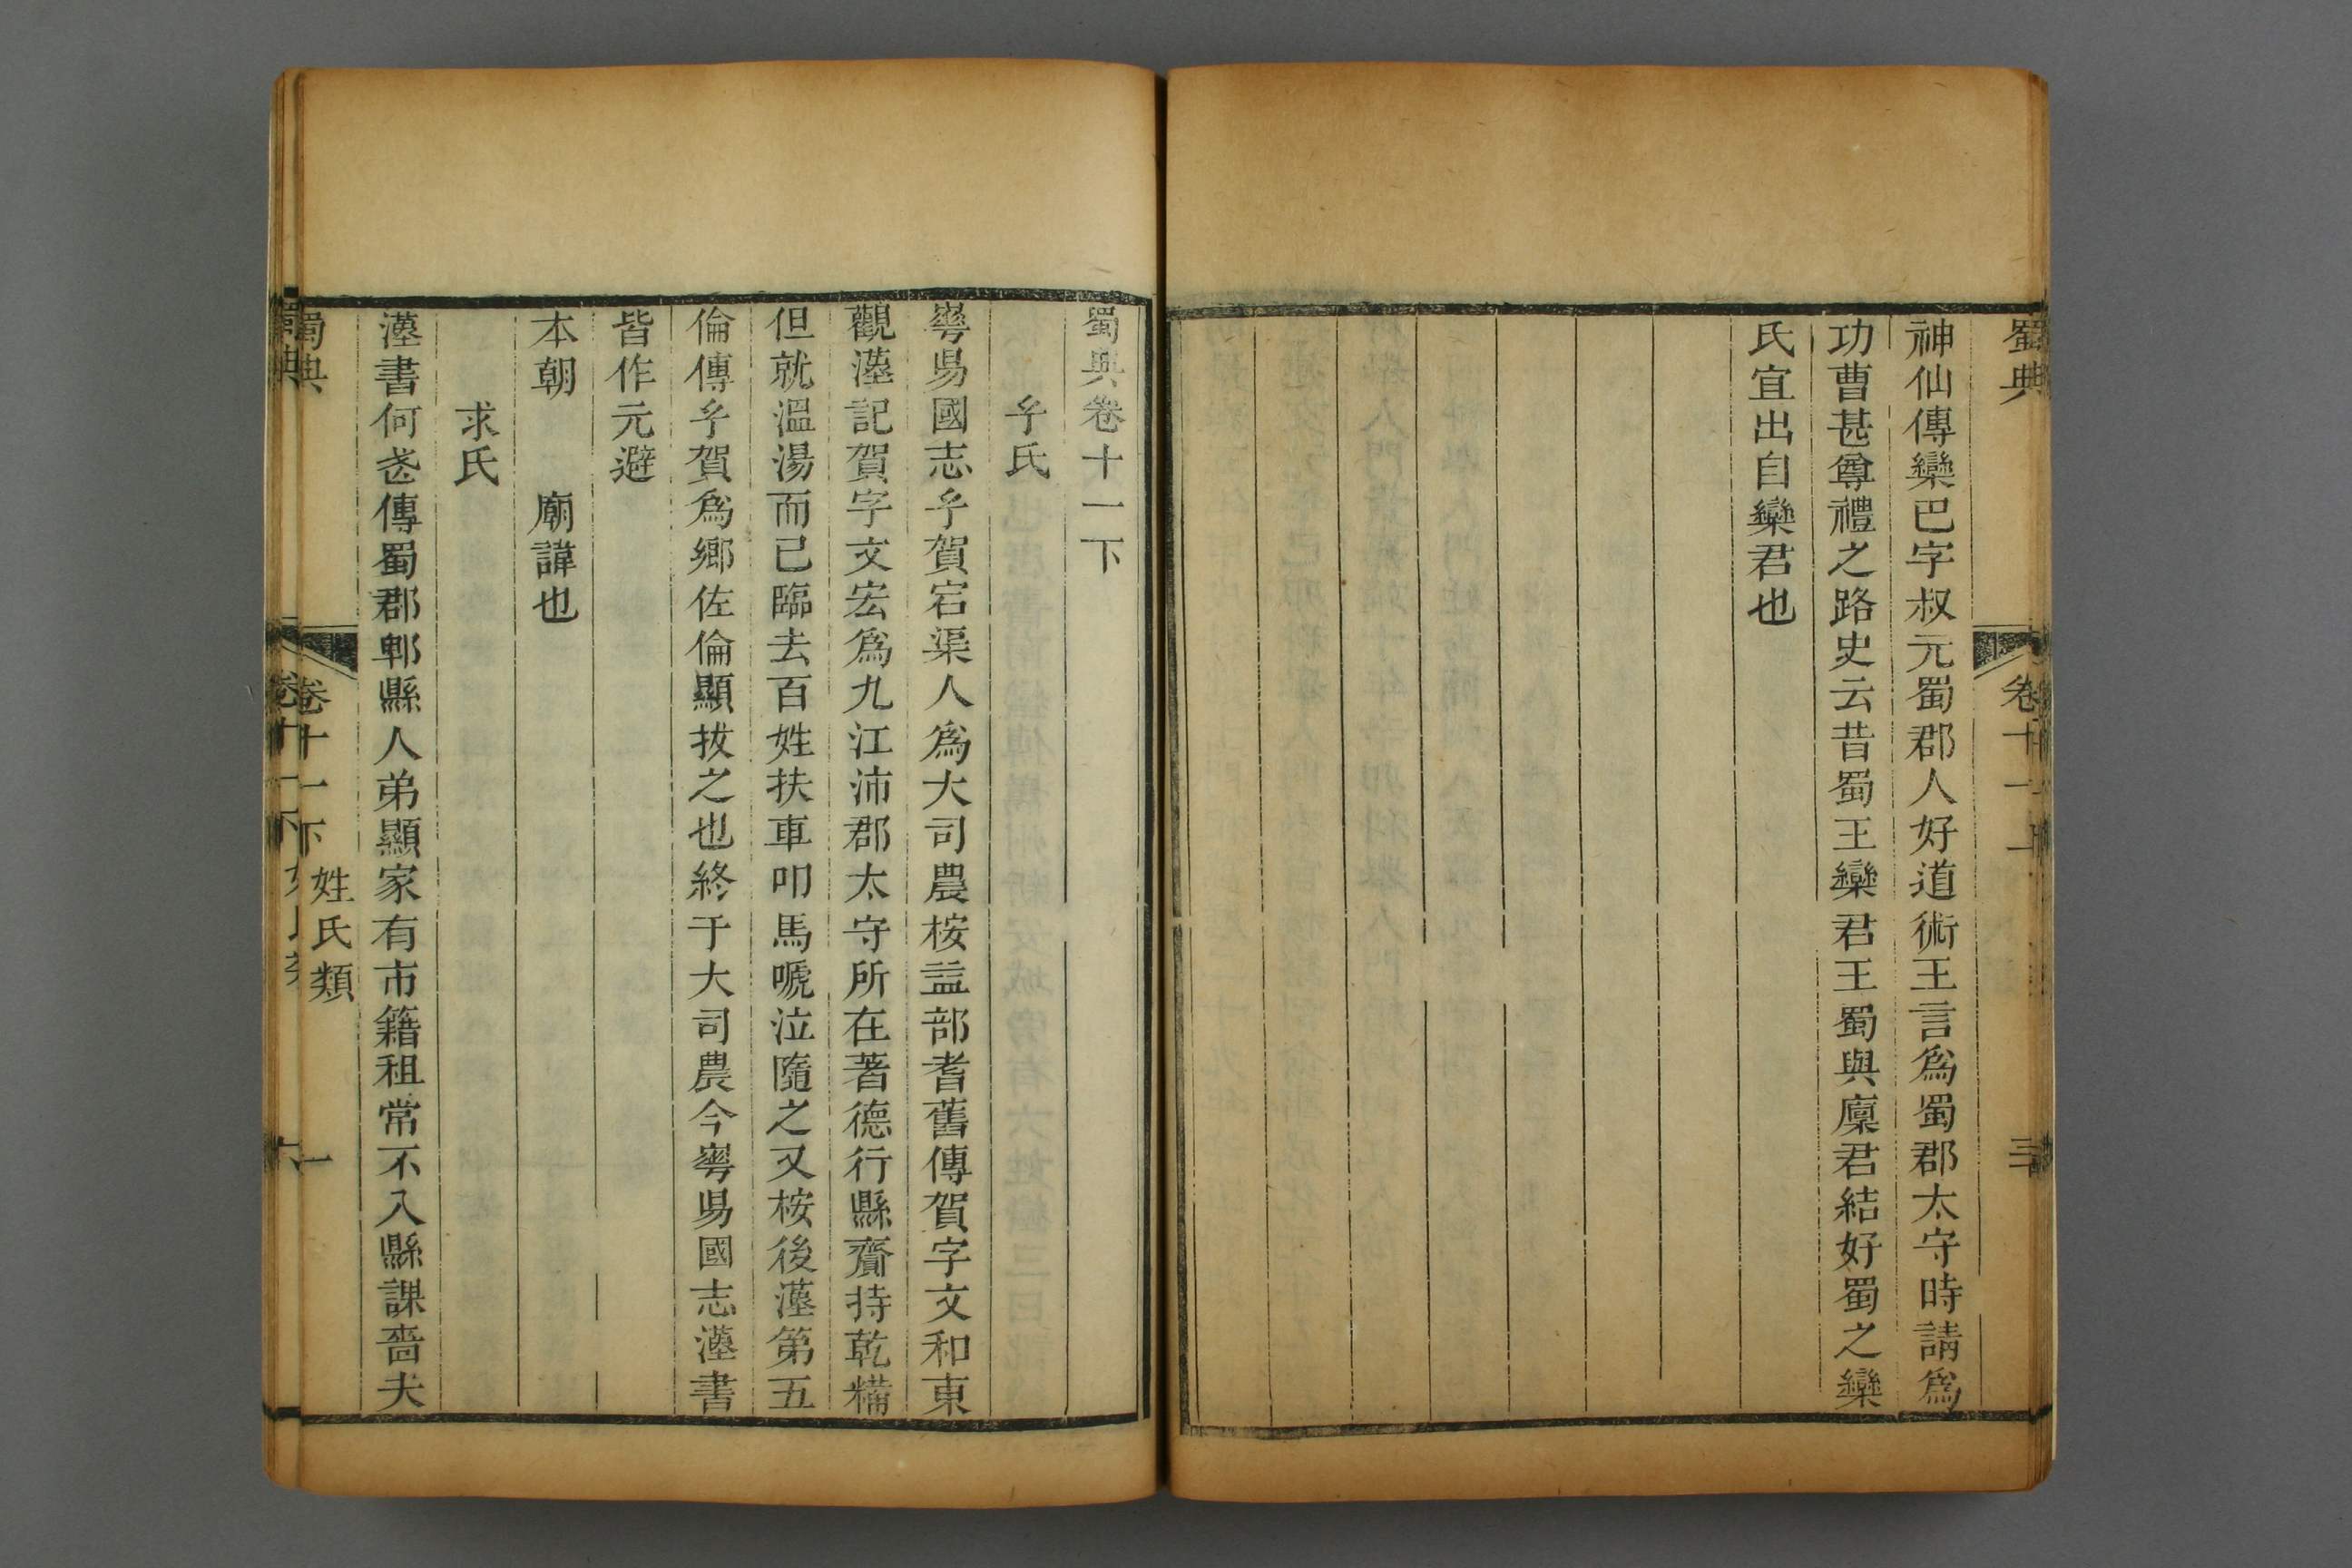 蜀典
卷十一上
三
神仙傳欒巴字叔元蜀郡人好道術王言爲蜀郡太守時請爲
功曹甚尊禮之路史云昔蜀王欒君王蜀與廩君結好蜀之欒
氏宜出自欒君也
蜀典卷十一下
𤣥氏
㠭易國志賀宕渠人爲大司農桉益部耆舊傳賀字文和東
觀漢記賀字文宏爲九江沛郡太守所在著德行縣齎持乾糒
但就溫湯而已臨去百姓扶車叩馬嗁泣隨之又桉後漢第五
倫傳賀爲鄉佐倫顯拔之也終于大司農今易國志漢書
皆作元避
本朝　廟諱也
求氏
漢書何武傳蜀郡郫縣人弟顯家有市籍租常不入縣課嗇夫
蜀典
卷十一下
姓氏類
一